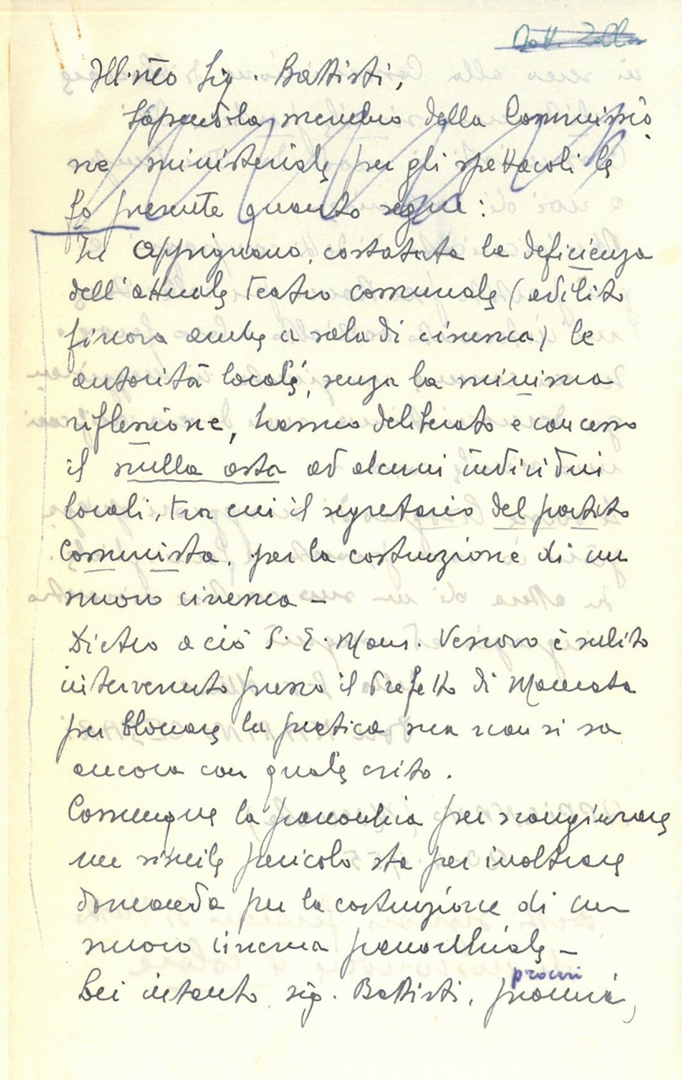 Ill.mo Sig. Battisti,
Sapendola membro della Commissio
ne ministeriale per gli spettacoli le
fo presente quanto segue:
In Appignano, costatata la deficienza
dell'attuale teatro comunale (adibito
finora anche a sala di cinema) le
autorità locali, senza la minima
riflessione, hanno deliberato e concesso
il nulla osta ad alcuni individui
locali, tra cui il segretario del partito
Comunista, per la costruzione di un
nuovo cinema -
Dietro a ciò S. E. Mons. Vescovo è subito
intervenuto presso il Prefetto di Macerata
per bloccare la pratica ma non si sa
ancora con quale esito.
Comunque la parrocchia per scongiurare
un simile pericolo sta per inoltrare
domanda per la costruzione di un
nuovo cinema parrocchiale -
procuri
Lei intanto, sig. Battisti,